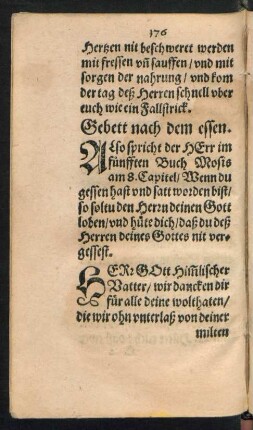 176
Hertzen nit beschweret werden
mit fressen vñ sauffen/ vnd mit
sorgen der nahrung/ vnd kom
der tag deß Herren schnell vber
euch wie ein Fallstrick.
Gebett nach dem essen.
ALso spricht der HErr im
fünfften Buch Mosis
am 8. Capitel/ Wenn du
gessen hast vnd satt worden bist/
so soltu den Herrn deinen Gott
loben/ vnd hüte dich/ daß du deß
Herren deines Gottes nit ver-
gessest.
HERr GOtt Him̃lischer
Vatter/ wir dancken dir
für alle deine wolthaten/
die wir ohn vnterlaß von deiner
milten